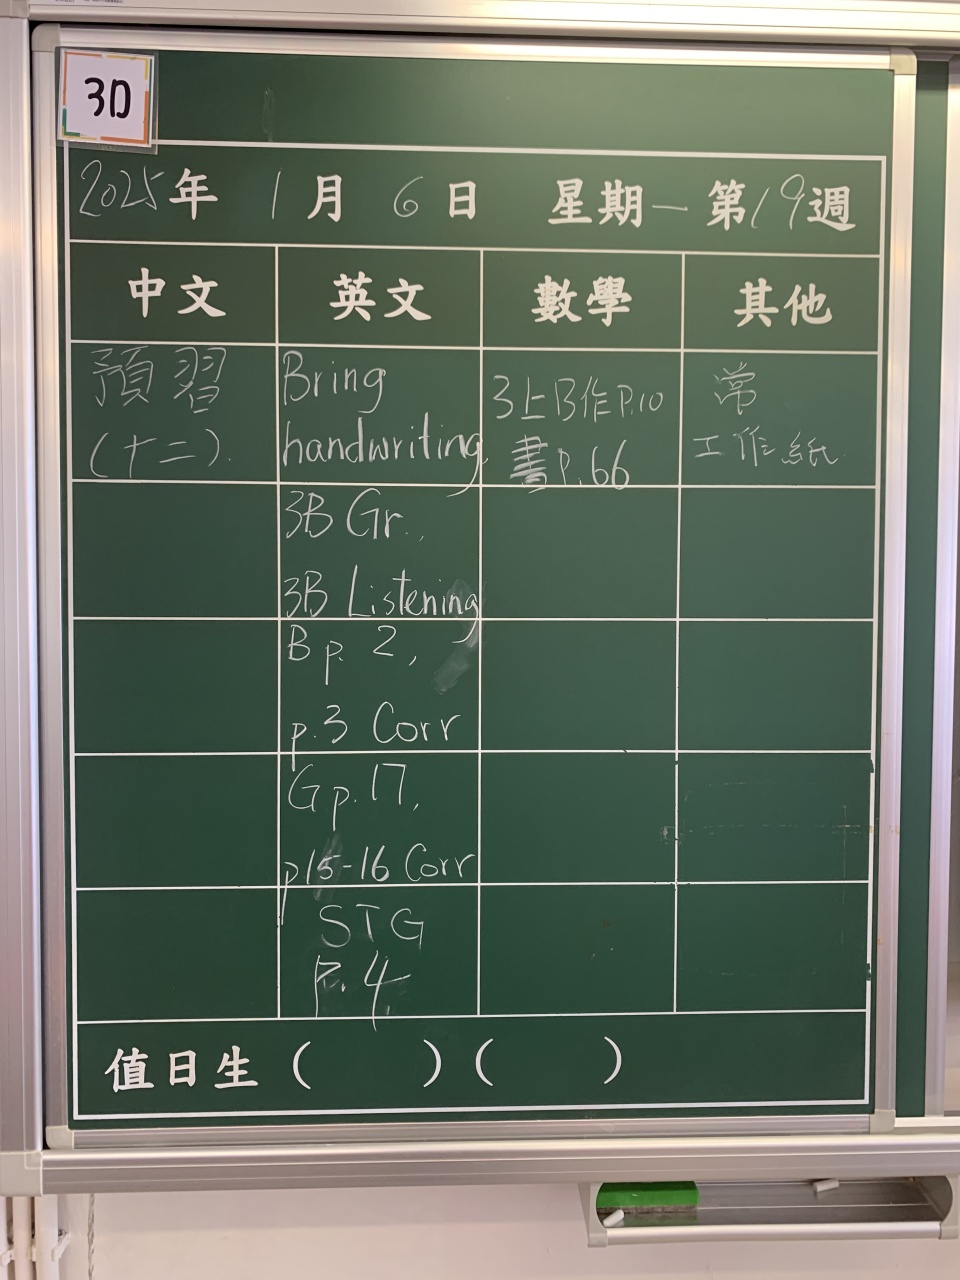 3D
2025年 1月 6日 星期一 第19週
中文 英文 數學 其他
預習
(十二).
Bring
handwriting,
3B Gr.,
3B Listening
B p. 2,
p.3 Corr
G p.17,
p15-16 Corr
STG
P.4
3上B作P.10
書P.66
常
工作紙
值日生 ( ) ( )